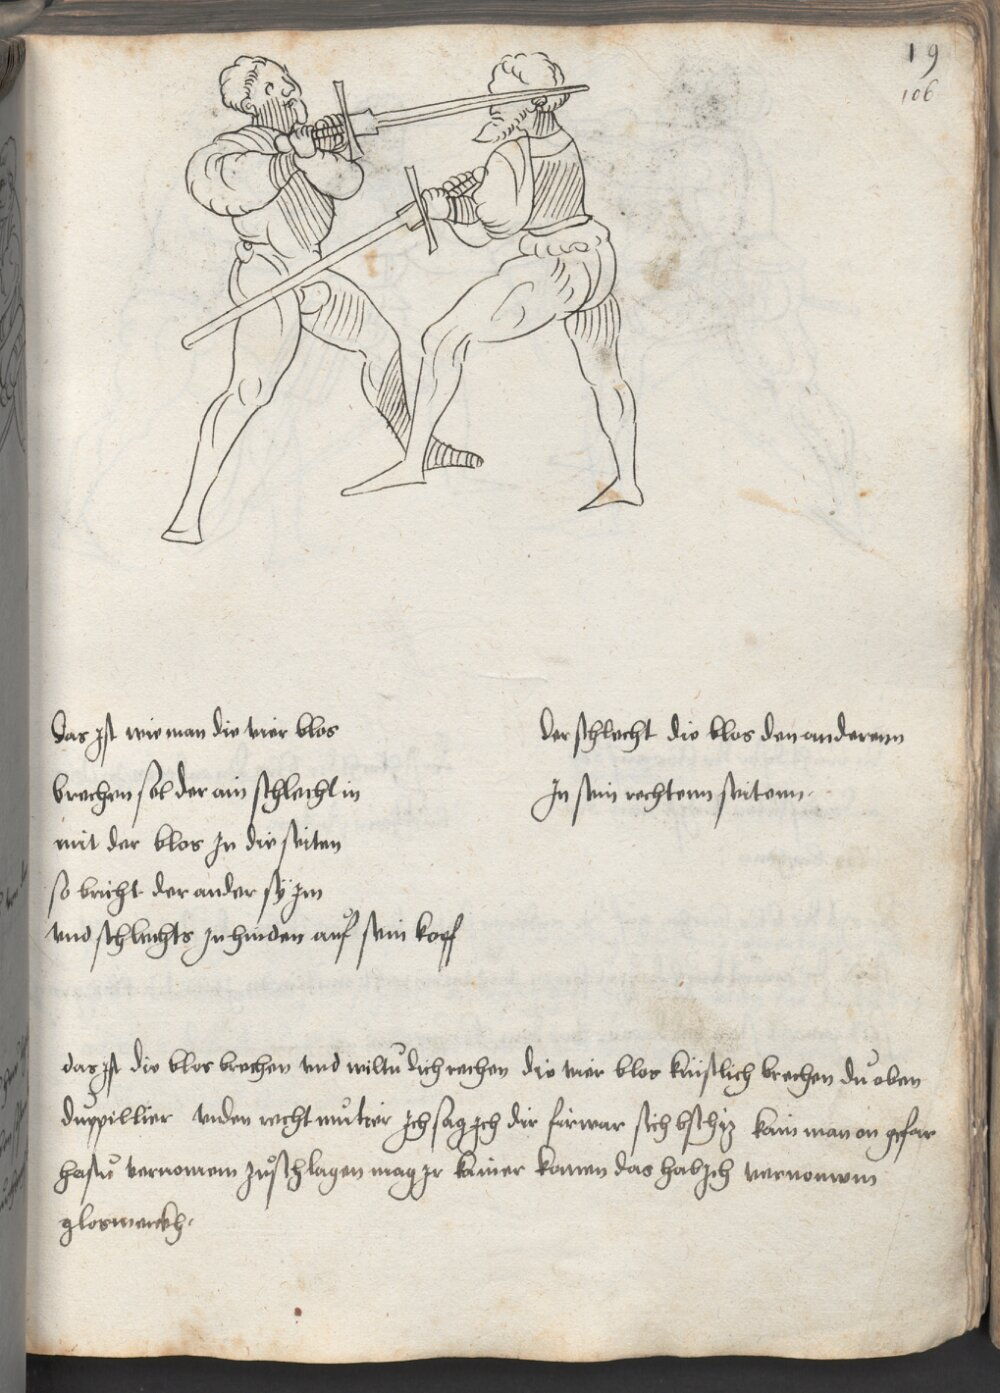 19
106
Das ist wie man die vier blos
brechen sol der ain schlecht in
mit der blos in die seiten
so bricht der ander sÿ im
und schlechts zu hinden auf sein kopf
Der schlecht die blos den anderenn
In sein rechtenn seitenn.
das ist die blos brechen und wiltu dich rechen die vier blos künstlich brechen du oben
duppillier unden recht mutier ich sag ich dir fürwar sich kain man on gefar
hastu vernomem zuschlagen mag er kainer komen das hab ich vernomem
glos merckh.